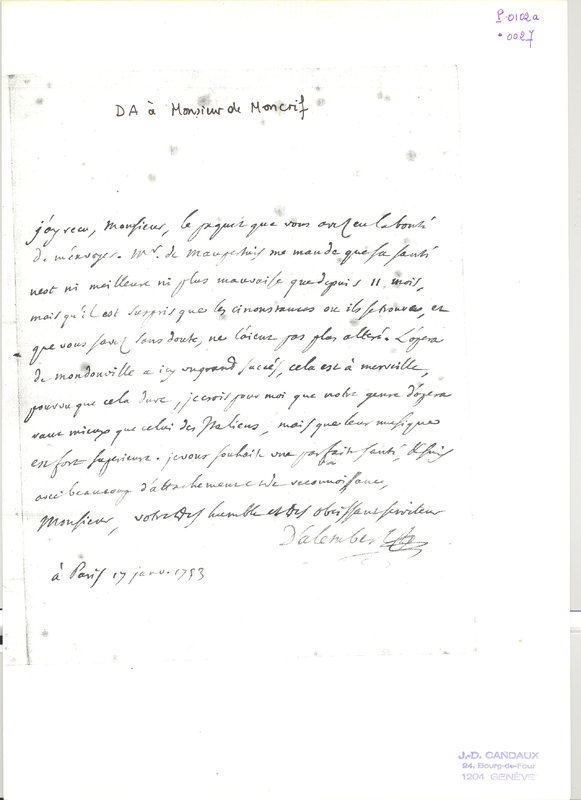 P.0102a
• 0027
DA à Monsieur de Moncrif
j'ay recu, Monsieur, le paquet que vous avez eu la bonté
de m'envoyer. Mr. de Maupertuis me mande que sa santé
n'est ni meilleure ni plus mauvaise que depuis 11 mois,
mais qu'il est surpris que les circonstances où il se trouve, et
que vous savez sans doute, ne l'aient pas plus alteré. L'opera
de mondonville a icy un grand succés, cela est à merveille,
pourvu que cela dure, je crois pour moi que notre genre d'opera
vaut mieux que celui des Italiens, mais que leur musique
est fort superieure. je vous souhaite une parfaite santé, & suis
avec beaucoup d'attachement et de reconnoissance,
Monsieur, votre tres humble et tres obeissant serviteur
D'alembert
à Paris 17 janv. 1753
J.-D. CANDAUX
24, Bourg-de-Four
1204 GENÈVE